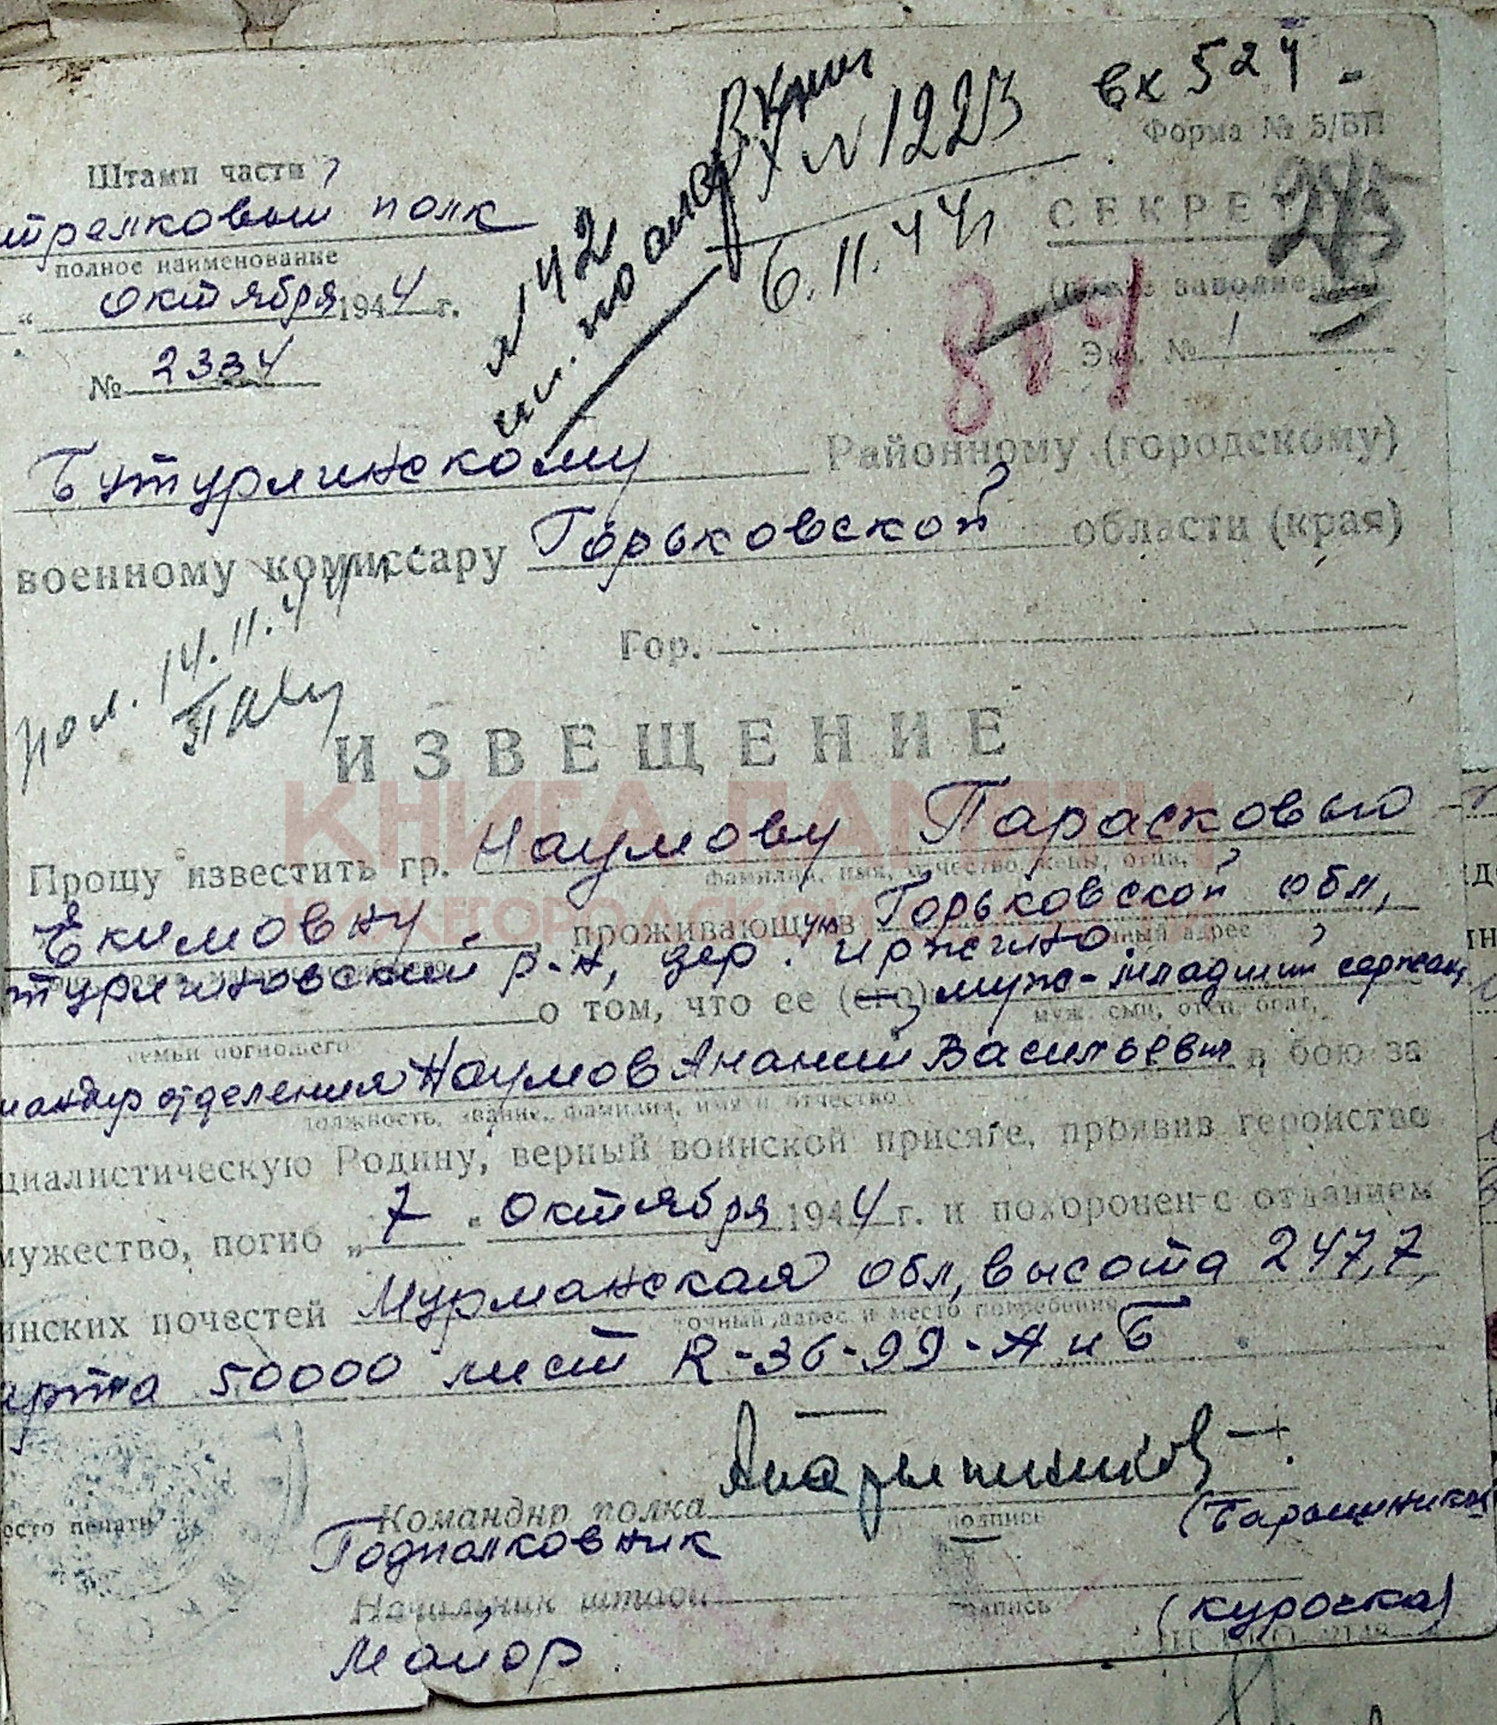 вх 524
№ 1223
6.11.44г
Форма № 5/БП
Штамп части
стрелковый полк
полное наименование
СЕКРЕТНО
245
„ октября 1944 г.
№ 42
по алф.
(после заполнения)
Экз. № 1
№ 2334
Бутурлинскому Районному (городскому)
военному комиссару Горьковской области (края)
Гор.
14.11.44г
ИЗВЕЩЕНИЕ
КНИГА ПАМЯТИ
НИЖЕГОРОДСКОЙ
Прошу известить гр. Наумову Парасковью
фамилия, имя, отчество жены, отца,
Екимовну, проживающую в Горьковской обл,
турлиновский р-н, дер. Иржино
о том, что ее (его) муж - младший сержант
муж, сын, отец, брат,
семьи погибшего
мандир отделения Наумов Ананий Васильевич в бою за
должность, звание, фамилия, имя и отчество
циалистическую Родину, верный воинской присяге, проявив геройство
мужество, погиб „7" октября 1944 г. и похоронен с отданием
инских почестей Мурманская обл, высота 247,7,
точный адрес и место погребения
арта 50000 лист R-36-99-А и Б
Командир полка
подпись
(Барышников
Подполковник
есто печати
Начальник штаба
подпись
(Курочка)
Майор